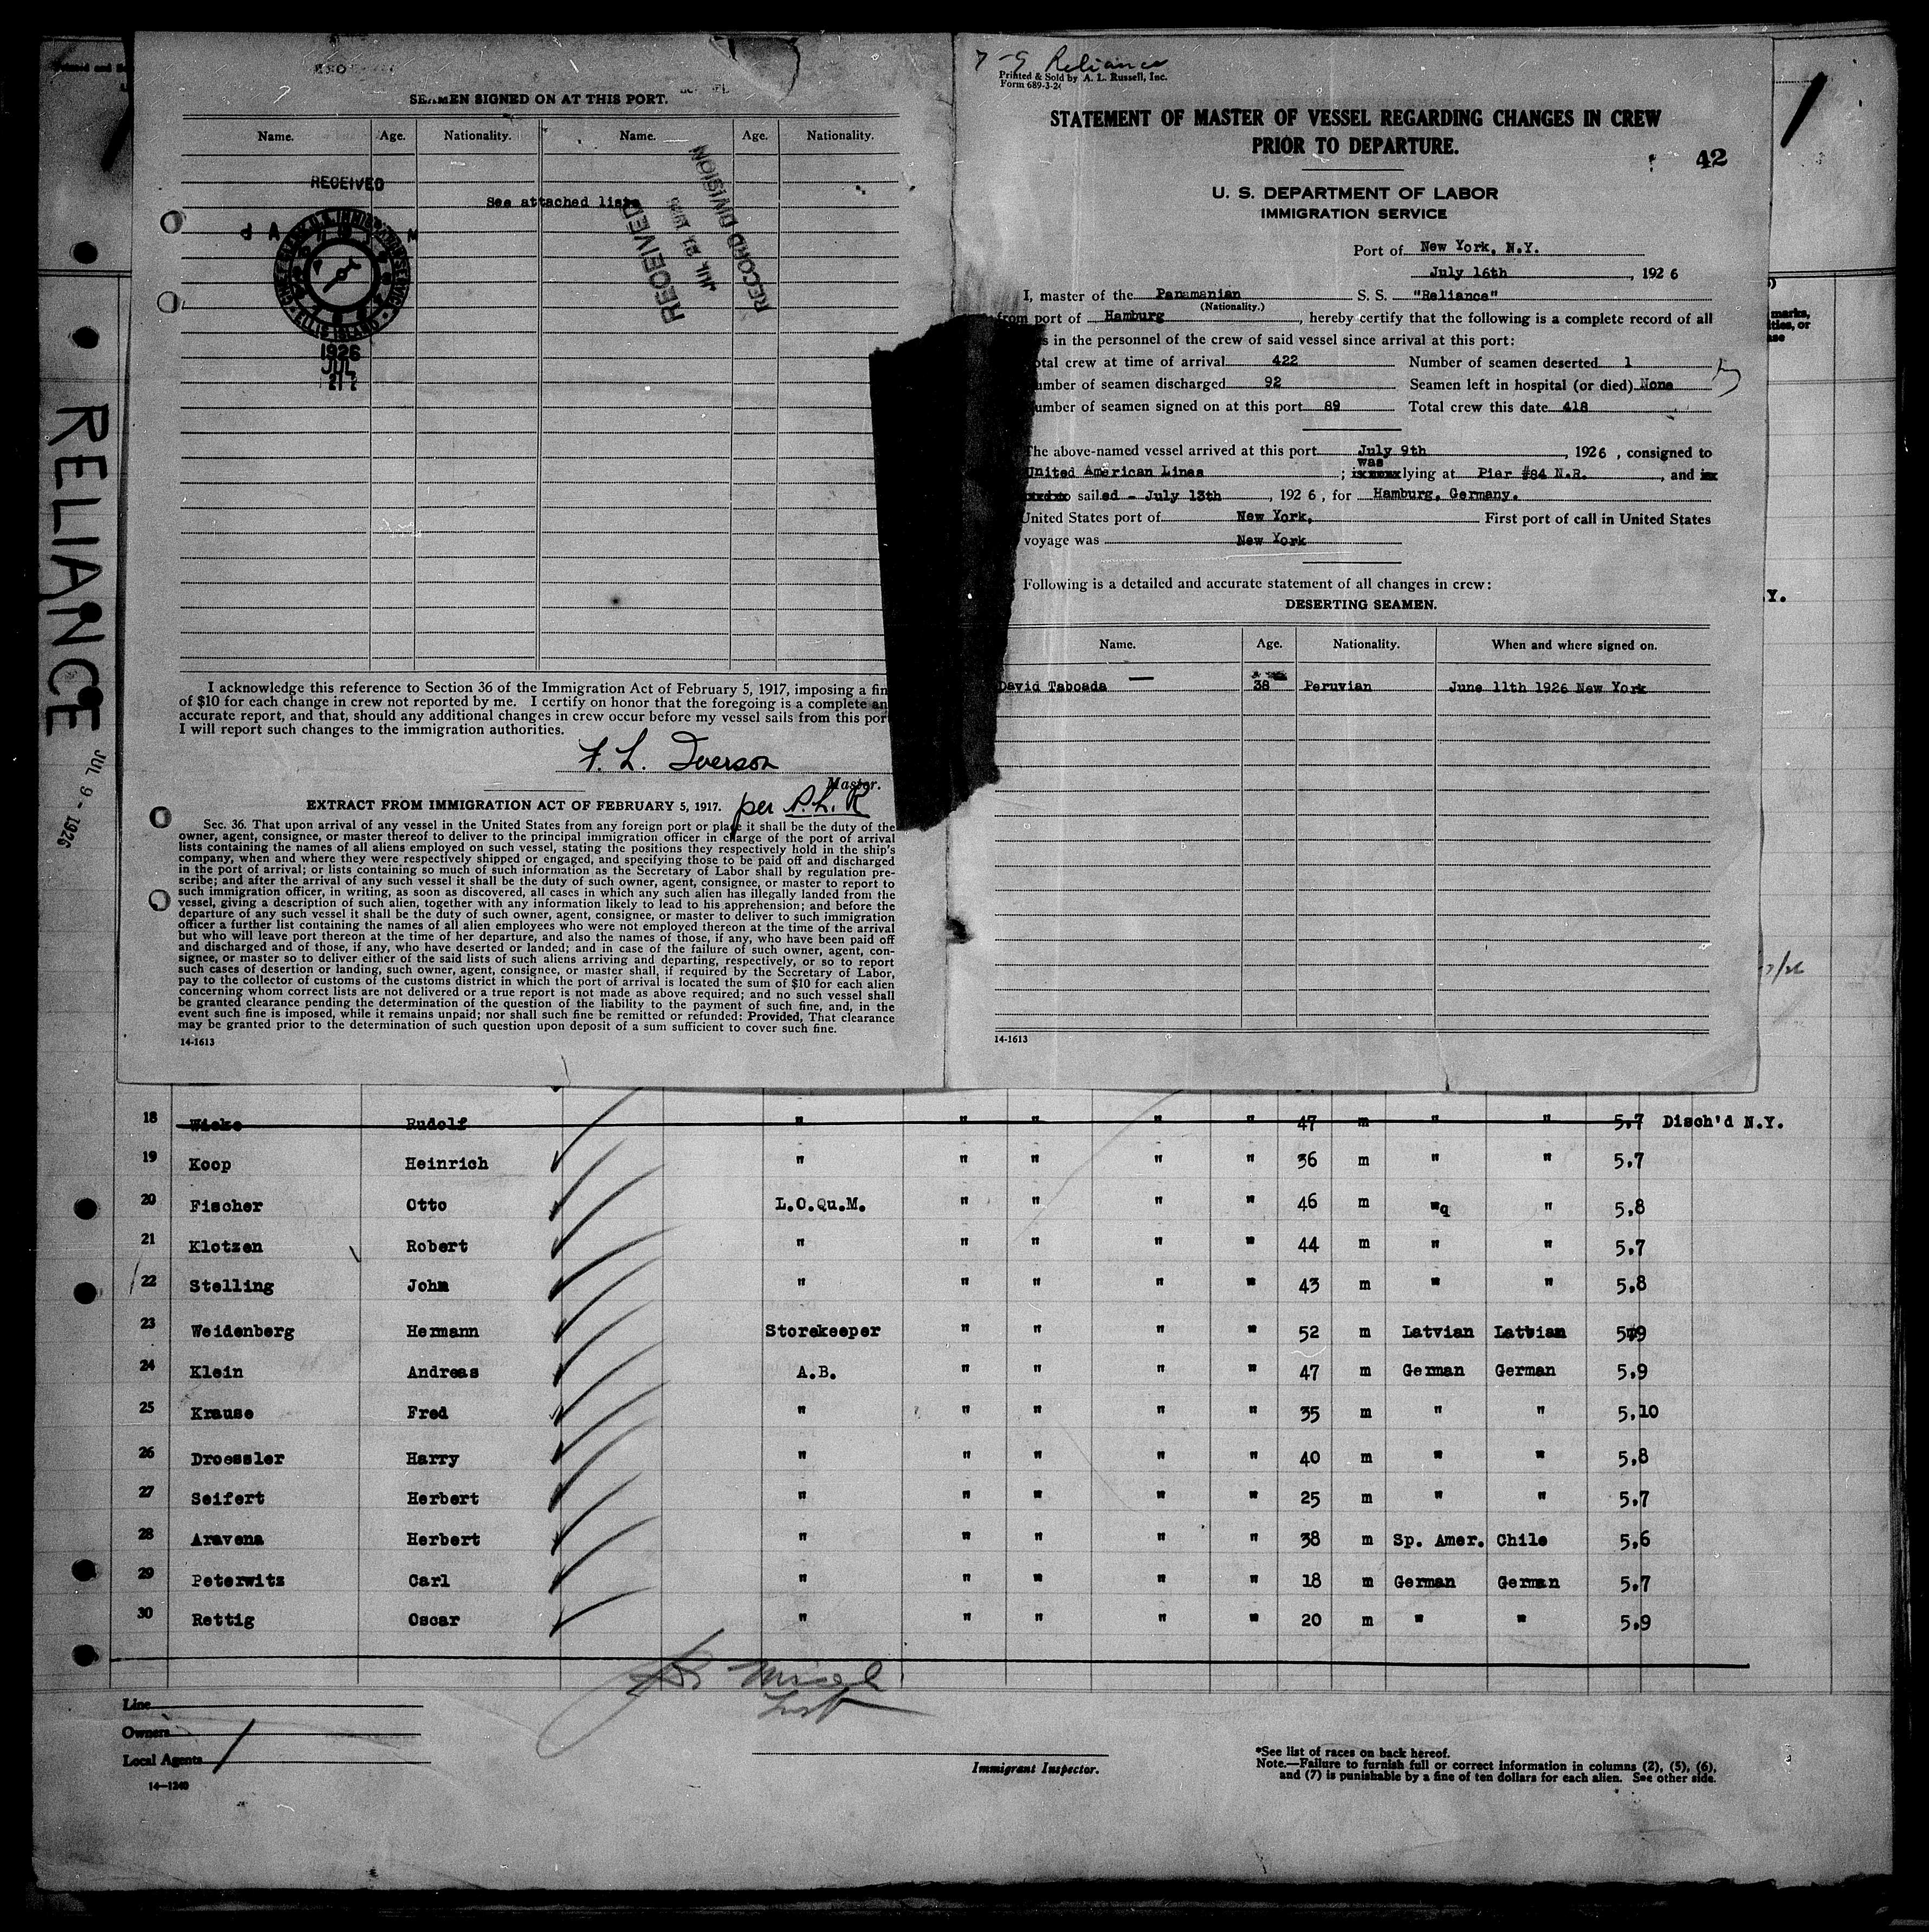 SEAMEN SIGNED ON AT THIS PORT.
Name. Age. Nationality. Name. Age. Nationality.
See attached lists
RECEIVED
ELLIS ISLAND
1926
JUL
21
RECEIVED
JUL 21 1926
RECORD DIVISION
I acknowledge this reference to Section 36 of the Immigration Act of February 5, 1917, imposing a fin
of $10 for each change in crew not reported by me. I certify on honor that the foregoing is a complete an
accurate report, and that, should any additional changes in crew occur before my vessel sails from this por
I will report such changes to the immigration authorities.
F. L. Iverson
Master.
per P. L. R
EXTRACT FROM IMMIGRATION ACT OF FEBRUARY 5, 1917.
Sec. 36. That upon arrival of any vessel in the United States from any foreign port or place it shall be the duty of the
owner, agent, consignee, or master thereof to deliver to the principal immigration officer in charge of the port of arrival
lists containing the names of all aliens employed on such vessel, stating the positions they respectively hold in the ship's
company, when and where they were respectively shipped or engaged, and specifying those to be paid off and discharged
in the port of arrival; or lists containing so much of such information as the Secretary of Labor shall by regulation pre-
scribe; and after the arrival of any such vessel it shall be the duty of such owner, agent, consignee, or master to report to
such immigration officer, in writing, as soon as discovered, all cases in which any such alien has illegally landed from the
vessel, giving a description of such alien, together with any information likely to lead to his apprehension; and before the
departure of any such vessel it shall be the duty of such owner, agent, consignee, or master to deliver to such immigration
officer a further list containing the names of all alien employees who were not employed thereon at the time of the arrival
but who will leave port thereon at the time of her departure, and also the names of those, if any, who have been paid off
and discharged and of those, if any, who have deserted or landed; and in case of the failure of such owner, agent, con-
signee, or master so to deliver either of the said lists of such aliens arriving and departing, respectively, or so to report
such cases of desertion or landing, such owner, agent, consignee, or master shall, if required by the Secretary of Labor,
pay to the collector of customs of the customs district in which the port of arrival is located the sum of $10 for each alien
concerning whom correct lists are not delivered or a true report is not made as above required; and no such vessel shall
be granted clearance pending the determination of the question of the liability to the payment of such fine, and, in the
event such fine is imposed, while it remains unpaid; nor shall such fine be remitted or refunded: Provided, That clearance
may be granted prior to the determination of such question upon deposit of a sum sufficient to cover such fine.
14-1613
RELIANCE
JUL 9 - 1926
7-9 Reliance
Printed & Sold by A. L. Russell, Inc.
Form 689-3-24
STATEMENT OF MASTER OF VESSEL REGARDING CHANGES IN CREW
PRIOR TO DEPARTURE.
42
U. S. DEPARTMENT OF LABOR
IMMIGRATION SERVICE
Port of New York, N.Y.
July 16th, 1926
I, master of the Panamanian S. S. "Reliance"
(Nationality.)
from port of Hamburg, hereby certify that the following is a complete record of all
s in the personnel of the crew of said vessel since arrival at this port:
otal crew at time of arrival 422 Number of seamen deserted 1
umber of seamen discharged 92 Seamen left in hospital (or died) None
umber of seamen signed on at this port 89 Total crew this date 418
The above-named vessel arrived at this port July 9th, 1926, consigned to
United American Lines; was lying at Pier #84 N.R., and
to sailed - July 13th, 1926, for Hamburg, Germany.
United States port of New York, First port of call in United States
voyage was New York
Following is a detailed and accurate statement of all changes in crew:
DESERTING SEAMEN.
Name. Age. Nationality. When and where signed on.
David Taboada 38 Peruvian June 11th 1926 New York
14-1613
marks,
ities, or
Y.
18 Wieke Rudolf " " " " " 47 m " " 5.7 Disch'd N.Y.
19 Koop Heinrich " " " " " 36 m " " 5.7
20 Fischer Otto L.O.Qu.M. " " " " 46 m "q " 5.8
21 Klotzen Robert " " " " " 44 m " " 5.7
22 Stelling John " " " " " 43 m " " 5.8
23 Weidenberg Hermann Storekeeper " " " " 52 m Latvian Latvian 5.9
24 Klein Andreas A.B. " " " " 47 m German German 5.9
25 Krause Fred " " " " " 35 m " " 5.10
26 Droessler Harry " " " " " 40 m " " 5.8
27 Seifert Herbert " " " " " 25 m " " 5.7
28 Aravena Herbert " " " " " 38 m Sp. Amer. Chile 5.6
29 Peterwitz Carl " " " " " 18 m German German 5.7
30 Rettig Oscar " " " " " 20 m " " 5.9
Line
Owners
Local Agents
14-1240
Immigrant Inspector.
*See list of races on back hereof.
Note.—Failure to furnish full or correct information in columns (2), (5), (6),
and (7) is punishable by a fine of ten dollars for each alien. See other side.